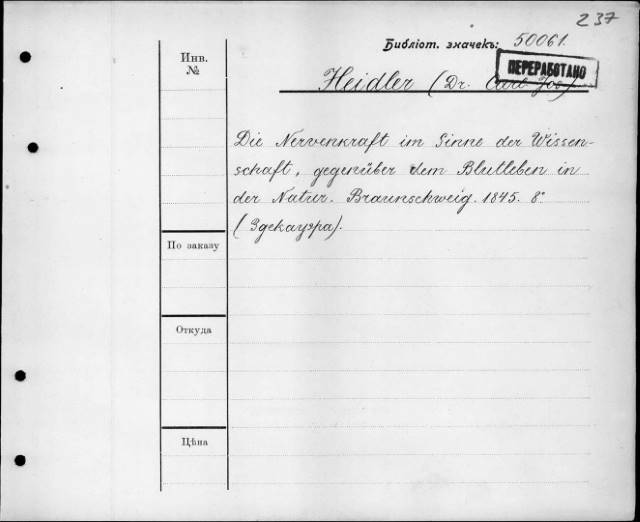 237
Библіот. значекъ: 50061.
ПЕРЕРАБОТАНО
Инв.
№
Heidler (Dr. Carl Jos)
Die Nervenkraft im Sinne der Wissen-
schaft, gegenüber dem Blutleben in
der Natur. Braunschweig. 1845. 8°
(Здекауэра).
По заказу
Откуда
Цѣна